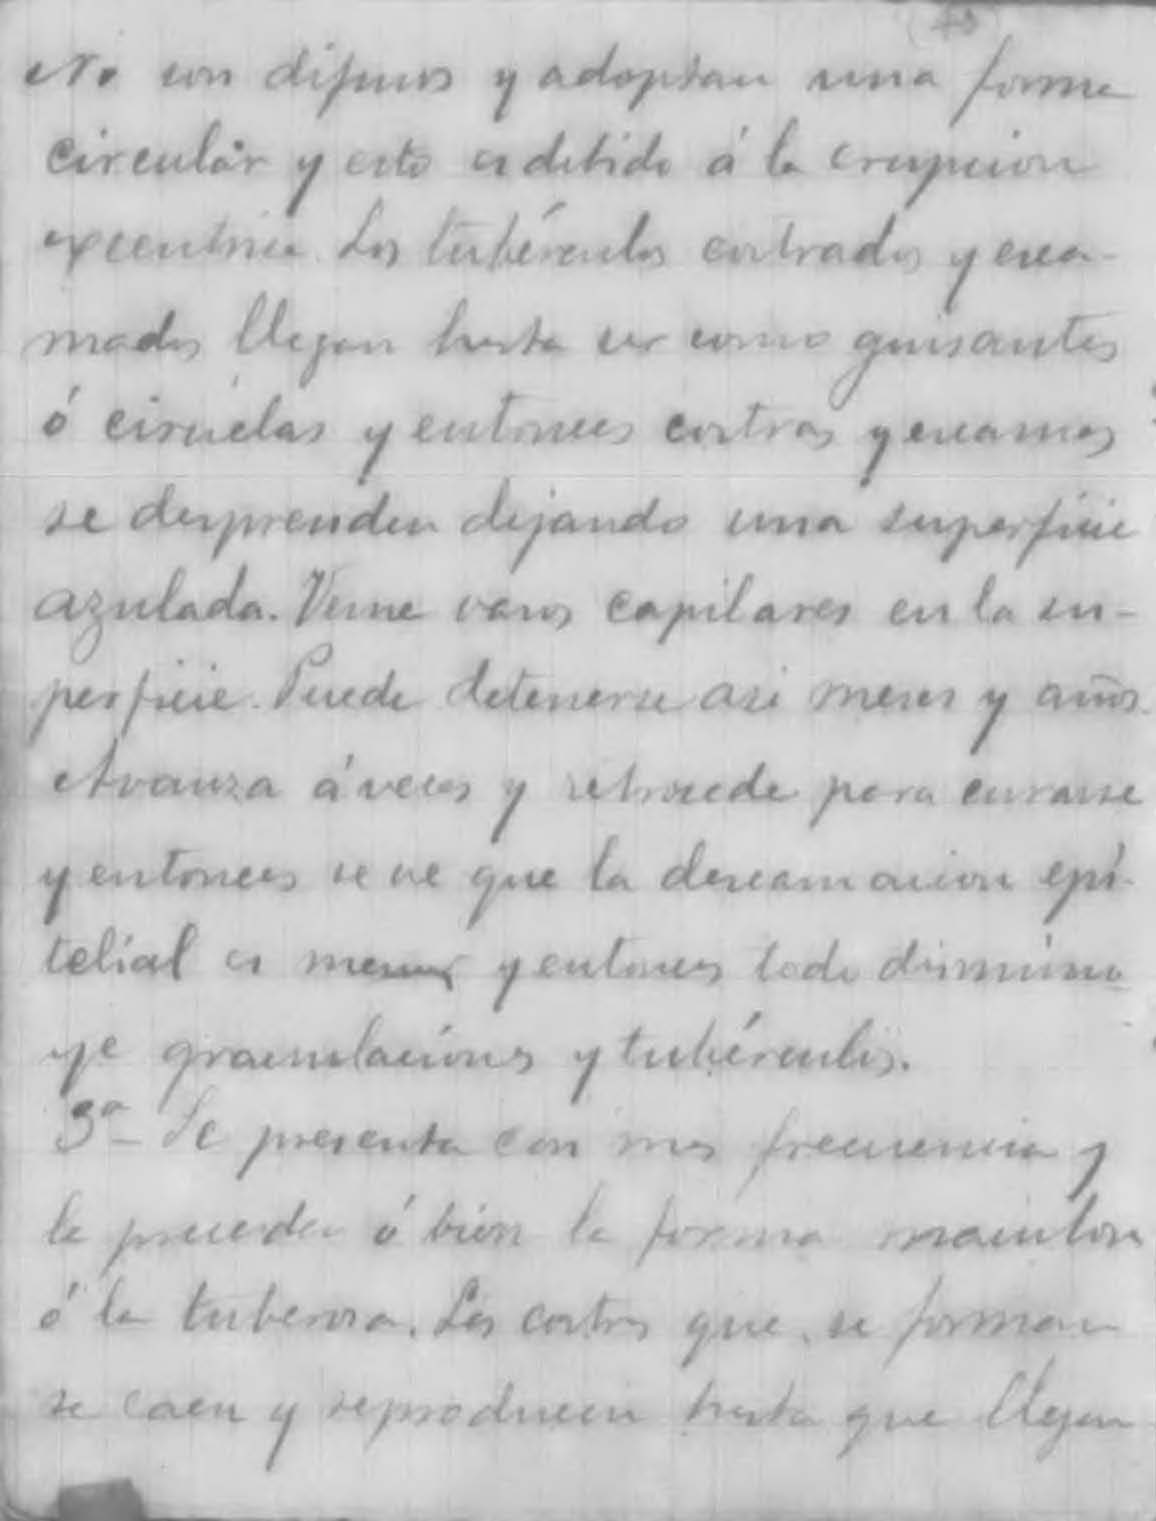 No son difusos y adoptan una forma
circular y esto es debido á la erupcion
excentrica. Los tubérculos costrados y esca-
mados llegan hasta ser como guisantes
ó ciruelas y entonces costras y escamas
se desprenden dejando una superficie
azulada. Vense vasos capilares en la su-
perficie. Puede detenerse asi meses y años.
Avanza á veces y retrocede para curarse
y entonces se ve que la descamacion epi-
telial es menor y entonces todo disminu-
ye granulaciones y tubérculos.
3ª - Se presenta con mas frecuencia y
le preceden ó bien la forma maculosa
ó la tuberosa. Las costras que se forman
se caen y reproducen hasta que llegan